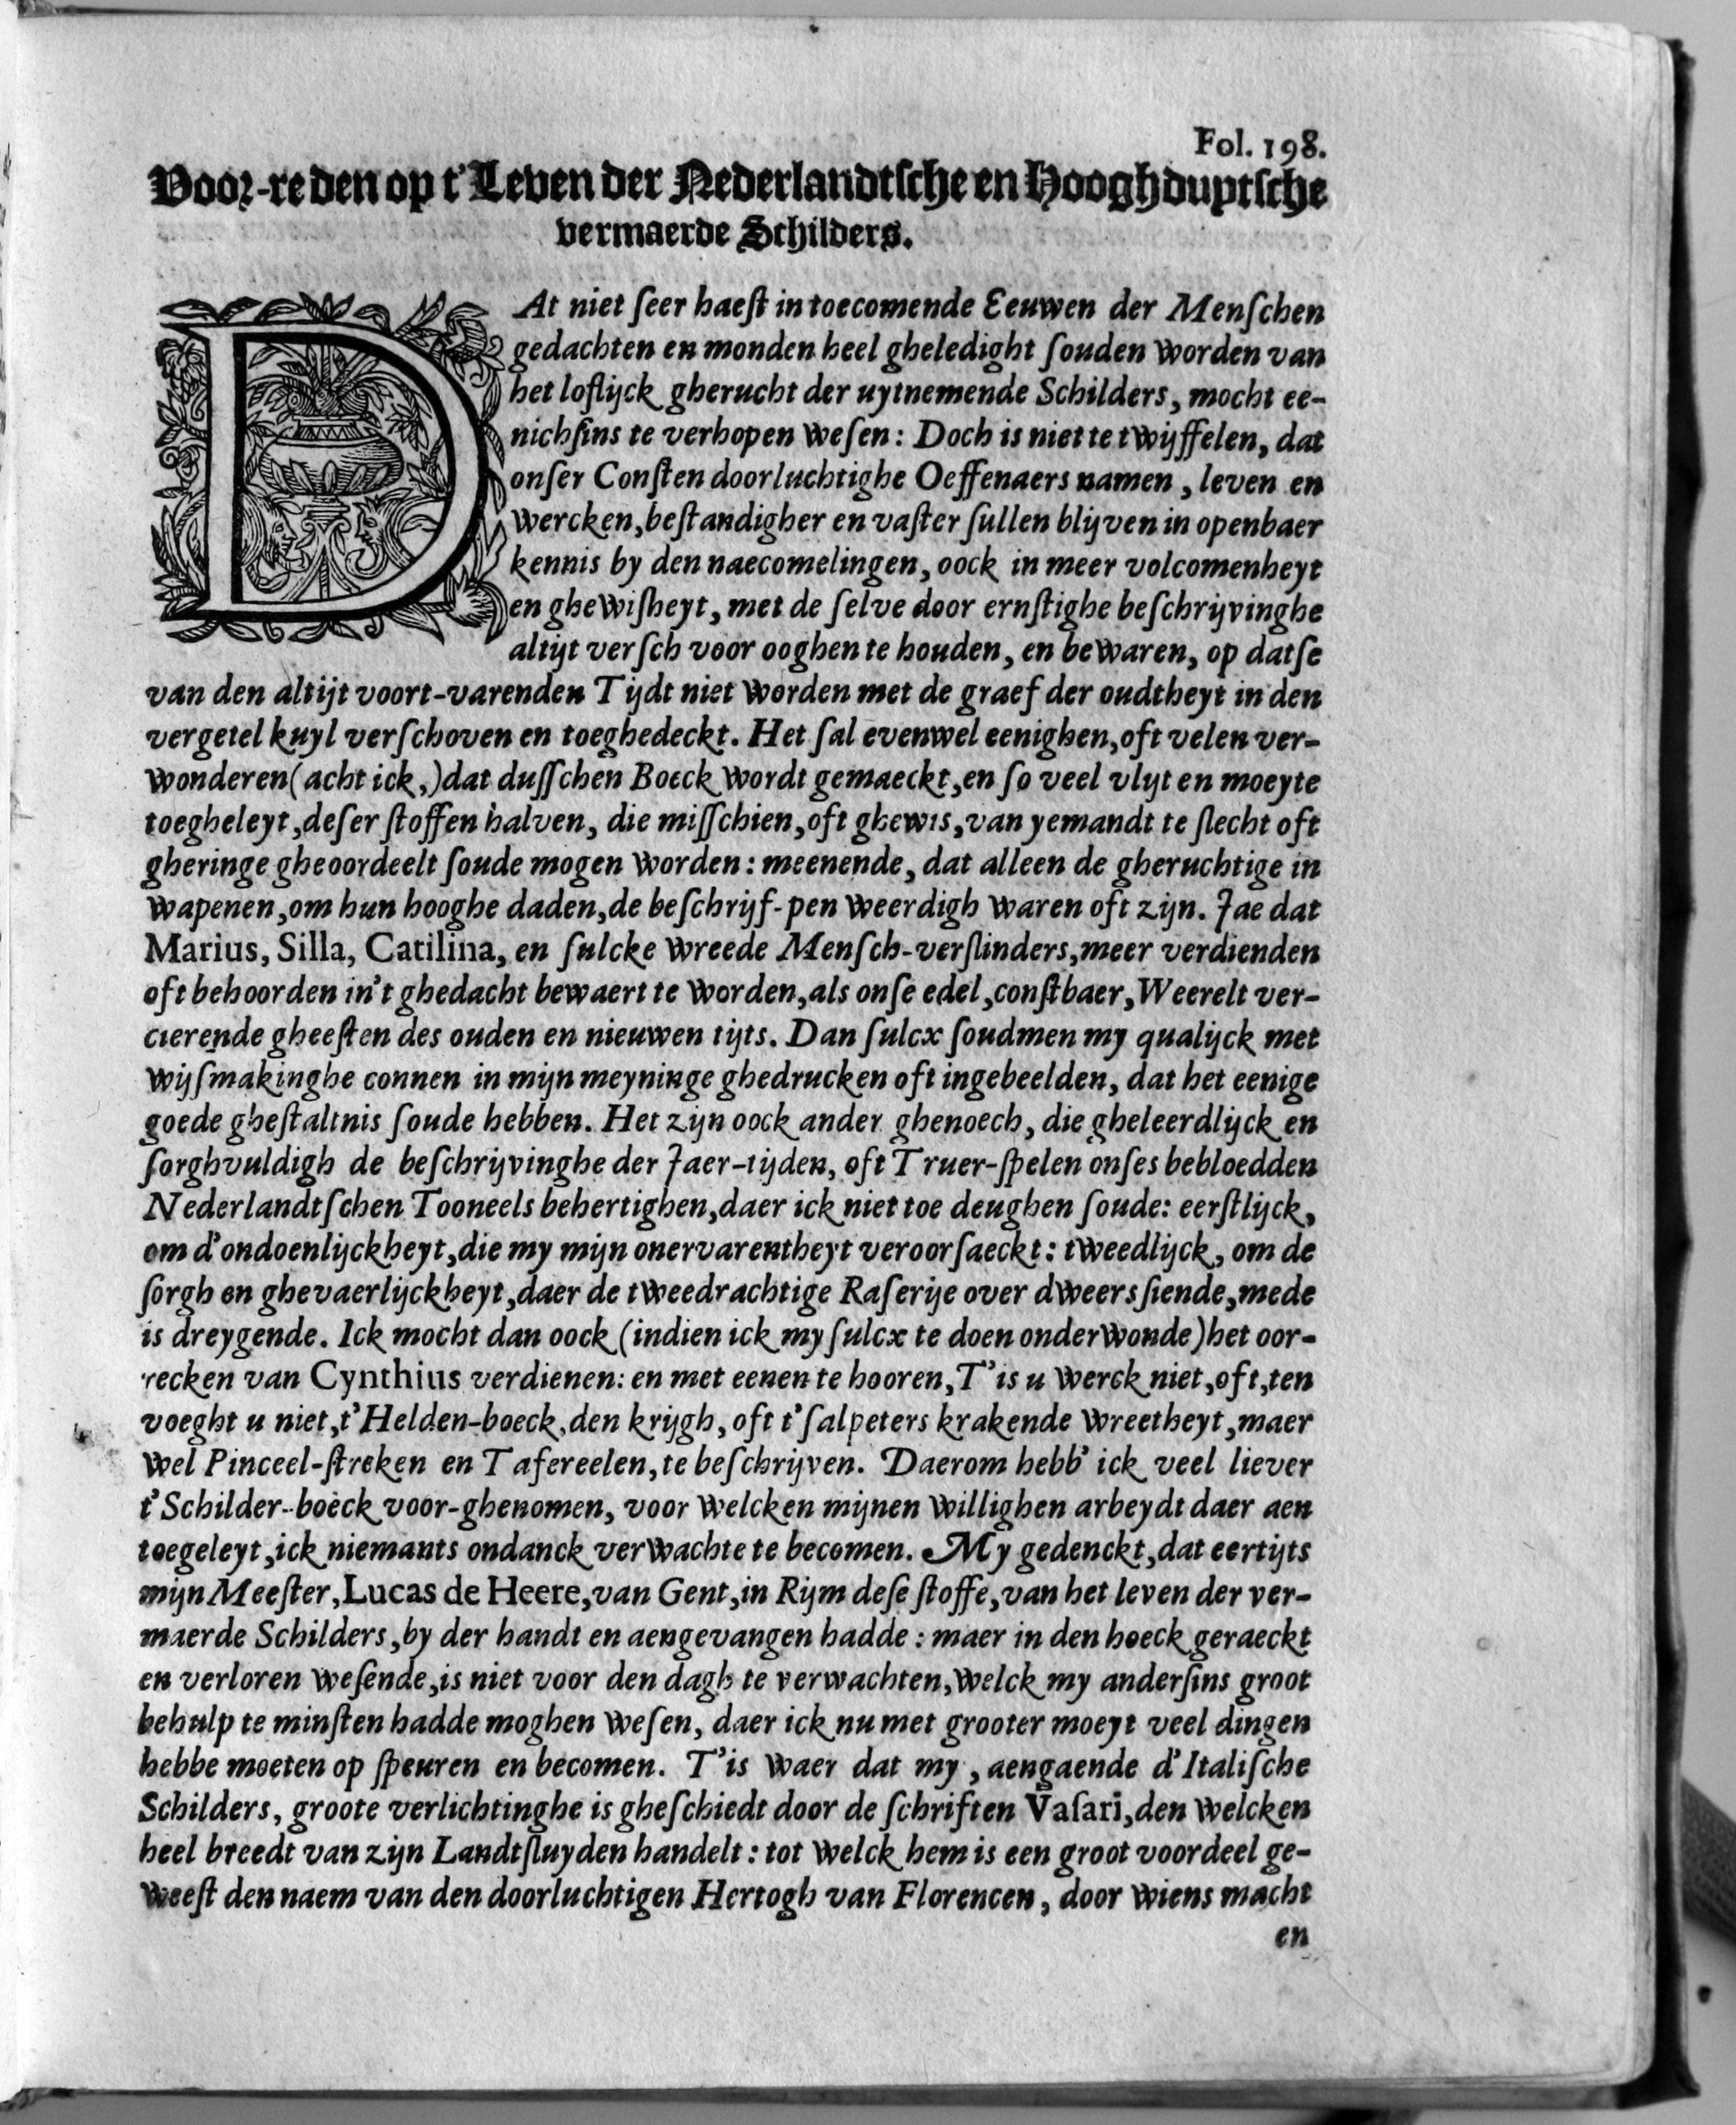 Fol. 198.
Voor-reden op t'Leven der Nederlandtsche en Hooghduytsche
vermaerde Schilders.
DAt niet ſeer haeſt in toecomende Eeuwen der Menſchen
gedachten en monden heel gheledight ſouden worden van
het loflijck gherucht der uytnemende Schilders, mocht ee-
nichſins te verhopen weſen: Doch is niet te twijffelen, dat
onſer Conſten doorluchtighe Oeffenaers namen, leven en
wercken, beſtandigher en vaſter ſullen blijven in openbaer
kennis by den naecomelingen, oock in meer volcomenheyt
en ghewiſheyt, met de ſelve door ernſtighe beſchrijvinghe
altijt verſch voor ooghen te houden, en bewaren, op datſe
van den altijt voort-varenden Tijdt niet worden met de graef der oudtheyt in den
vergetel kuyl verſchoven en toeghedeckt. Het ſal evenwel eenighen, oft velen ver-
wonderen (acht ick,) dat duſſchen Boeck wordt gemaeckt, en ſo veel vlijt en moeyte
toegheleyt, deſer ſtoffen halven, die miſſchien, oft ghewis, van yemandt te ſlecht oft
gheringe gheoordeelt ſoude mogen worden: meenende, dat alleen de gheruchtige in
wapenen, om hun hooghe daden, de beſchrijf-pen weerdigh waren oft zijn. Jae dat
Marius, Silla, Catilina, en ſulcke wreede Menſch-verſlinders, meer verdienden
oft behoorden in't ghedacht bewaert te worden, als onſe edel, conſtbaer, Weerelt ver-
cierende gheeſten des ouden en nieuwen tijts. Dan ſulcx ſoudmen my qualijck met
wijſmakinghe connen in mijn meyninge ghedrucken oft ingebeelden, dat het eenige
goede gheſtaltnis ſoude hebben. Het zijn oock ander ghenoech, die gheleerdlijck en
ſorghvuldigh de beſchrijvinghe der Jaer-tijden, oft Truer-ſpelen onſes bebloedden
Nederlandtſchen Tooneels behertighen, daer ick niet toe deughen ſoude: eerſtlijck,
om d'ondoenlijckheyt, die my mijn onervarentheyt veroorſaeckt: tweedlijck, om de
ſorgh en ghevaerlijckheyt, daer de tweedrachtige Raſerije over dweers ſiende, mede
is dreygende. Ick mocht dan oock (indien ick my ſulcx te doen onderwonde) het oor-
recken van Cynthius verdienen: en met eenen te hooren, T'is u werck niet, oft, ten
voeght u niet, t'Helden-boeck, den krijgh, oft t'ſalpeters krakende wreetheyt, maer
wel Pinceel-ſtreken en Tafereelen, te beſchrijven. Daerom hebb' ick veel liever
t'Schilder-boeck voor-ghenomen, voor welcken mijnen willighen arbeydt daer aen
toegeleyt, ick niemants ondanck verwachte te becomen. My gedenckt, dat eertijts
mijn Meeſter, Lucas de Heere, van Gent, in Rijm deſe ſtoffe, van het leven der ver-
maerde Schilders, by der handt en aengevangen hadde: maer in den hoeck geraeckt
en verloren weſende, is niet voor den dagh te verwachten, welck my anderſins groot
behulp te minſten hadde moghen weſen, daer ick nu met grooter moeyt veel dingen
hebbe moeten op ſpeuren en becomen. T'is waer dat my, aengaende d'Italiſche
Schilders, groote verlichtinghe is gheſchiedt door de ſchriften Vaſari, den welcken
heel breedt van zijn Landtſluyden handelt: tot welck hem is een groot voordeel ge-
weeſt den naem van den doorluchtigen Hertogh van Florencen, door wiens macht
en